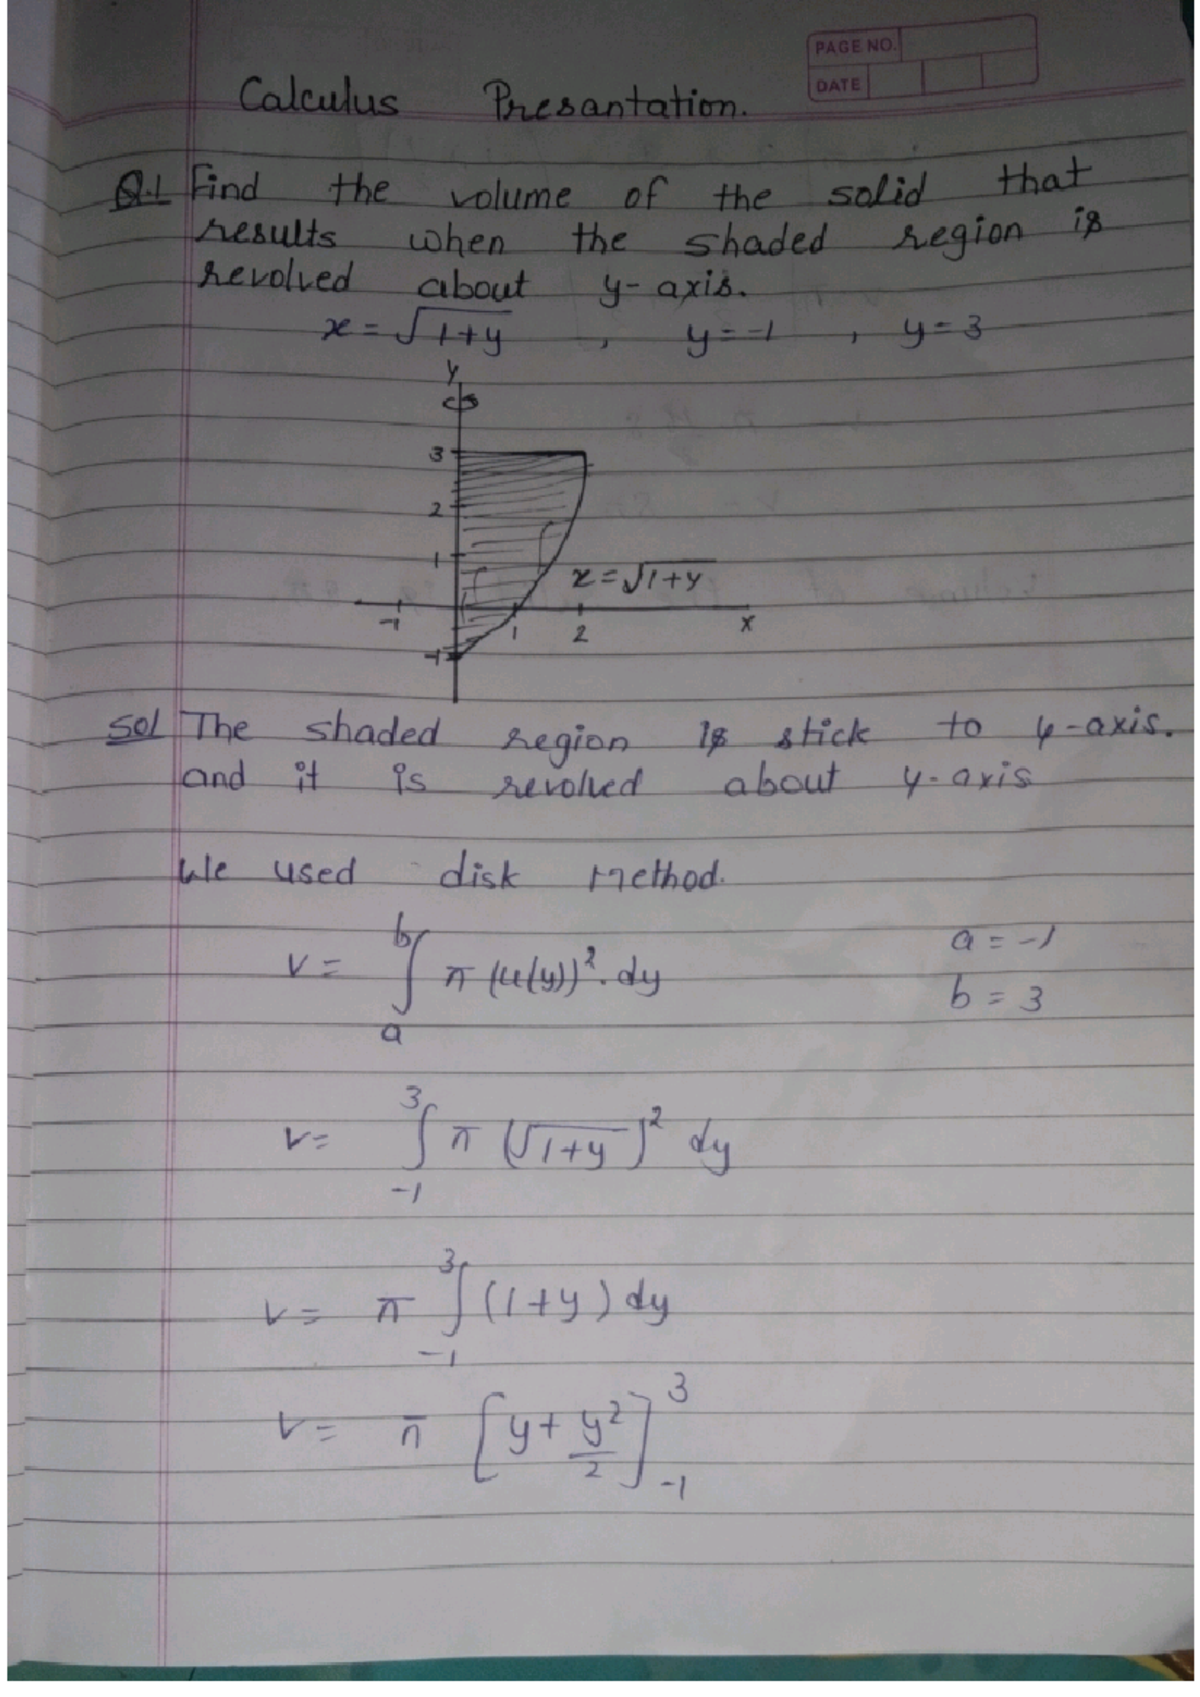 PAGE NO.
DATE
Calculus Presantation.
Q.1 Find the volume of the solid that
results when the shaded region is
revolved about y-axis.
x = √1+y , y = -1 , y = 3
y
3
2
1
x = √1+y
-1 1 2 x
-1
Sol The shaded region is stick to y-axis.
and it is revolved about y-axis
We used disk Method.
V = ∫ₐᵇ π (u(y))². dy a = -1
b = 3
V = ∫₋₁³ π (√1+y)² dy
V = π ∫₋₁³ (1+y) dy
V = π [y + y²/2]₋₁³